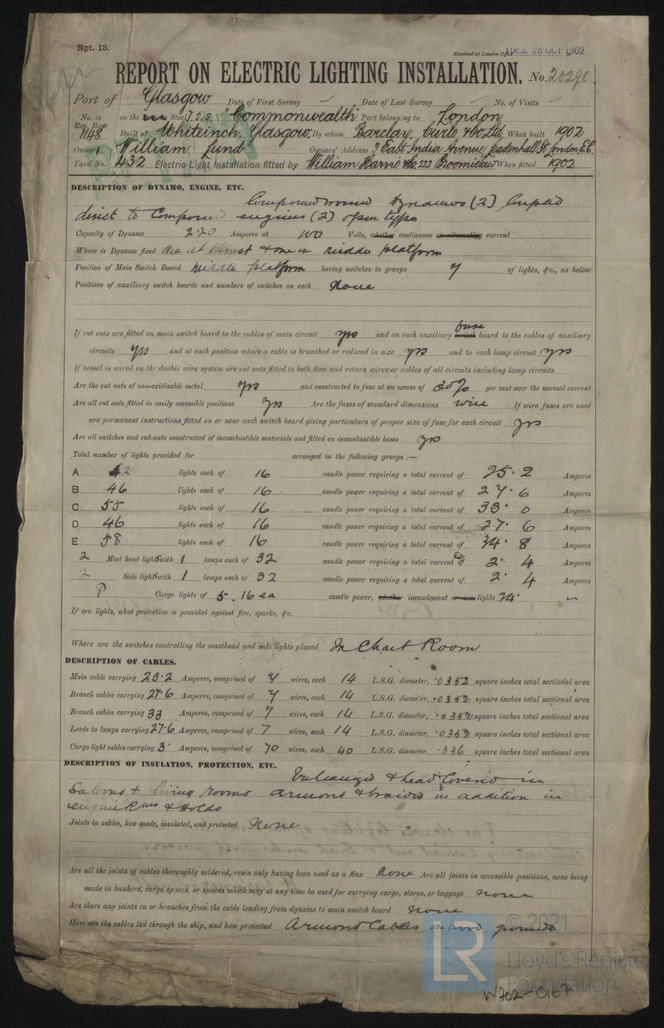 Rpt. 13.
Received at London Office TUES. 28 OCT 1902
REPORT ON ELECTRIC LIGHTING INSTALLATION. No. 20290.
Port of Glasgow Date of First Survey Date of Last Survey No. of Visits
No. in Reg. Book on the Steel T.S.S. "Commonwealth Port belonging to London
1148 Built at Whiteinch, Glasgow By whom Barclay, Curle & Co Ltd When built 1902
Owners William Lund Owners' Address 3 East India Avenue, Leadenhall St London E.C.
Yard No. 432 Electric Light Installation fitted by William Harvie & Co. 222 Broomielaw When fitted 1902
DESCRIPTION OF DYNAMO, ENGINE, ETC.
Compound wound Dynamos (2) Coupled
direct to Compound engines (2) open type
Capacity of Dynamo 220 Amperes at 100 Volts, whether continuous or alternating current
Where is Dynamo fixed One at thrust & one on middle platform
Position of Main Switch Board Middle platform having switches to groups 7 of lights, &c., as below
Positions of auxiliary switch boards and numbers of switches on each None
If cut outs are fitted on main switch board to the cables of main circuit yes and on each auxiliary switch fuse board to the cables of auxiliary
circuits yes and at each position where a cable is branched or reduced in size yes and to each lamp circuit yes
If vessel is wired on the double wire system are cut outs fitted to both flow and return wires or cables of all circuits including lamp circuits
Are the cut outs of non-oxidizable metal yes and constructed to fuse at an excess of 20% per cent over the normal current
Are all cut outs fitted in easily accessible positions yes Are the fuses of standard dimensions wire If wire fuses are used
are permanent instructions fitted on or near each switch board giving particulars of proper size of fuse for each circuit yes
Are all switches and cut-outs constructed of incombustible materials and fitted on incombustible bases yes
Total number of lights provided for arranged in the following groups :—
A 42 lights each of 16 candle power requiring a total current of 25.2 Amperes
B 46 lights each of 16 candle power requiring a total current of 27.6 Amperes
C 55 lights each of 16 candle power requiring a total current of 33.0 Amperes
D 46 lights each of 16 candle power requiring a total current of 27.6 Amperes
E 58 lights each of 16 candle power requiring a total current of 34.8 Amperes
2 Mast head lights with 1 lamps each of 32 candle power requiring a total current of 2.4 Amperes
2 Side lights with 1 lamps each of 32 candle power requiring a total current of 2.4 Amperes
8 Cargo lights of 5.16 ea candle power, whether incandescent or arc lights 24.
If arc lights, what protection is provided against fire, sparks, &c.
Where are the switches controlling the masthead and side lights placed In Chart Room
DESCRIPTION OF CABLES.
Main cable carrying 25.2 Amperes, comprised of 7 wires, each 14 L.S.G. diameter, .0352 square inches total sectional area
Branch cables carrying 27.6 Amperes, comprised of 7 wires, each 14 L.S.G. diameter, .0352 square inches total sectional area
Branch cables carrying 33 Amperes, comprised of 7 wires, each 14 L.S.G. diameter, .0352 square inches total sectional area
Leads to lamps carrying 27.6 Amperes, comprised of 7 wires, each 14 L.S.G. diameter, .0352 square inches total sectional area
Cargo light cables carrying 3 Amperes, comprised of 70 wires, each 40 L.S.G. diameter, square inches total sectional area
DESCRIPTION OF INSULATION, PROTECTION, ETC.
Vulcanized & lead Covered in
Saloons & living rooms armoured & braided in addition in
engine Rms & Holds
Joints in cables, how made, insulated, and protected None
Are all the joints of cables thoroughly soldered, resin only having been used as a flux None Are all joints in accessible positions, none being
made in bunkers, cargo spaces, or spaces which may at any time be used for carrying cargo, stores, or baggage none
Are there any joints in or branches from the cable leading from dynamo to main switch board none
How are the cables led through the ship, and how protected Armoured Cables on wood grounds
LR
© 2021
Lloyd's Register
Foundation
W702-0167